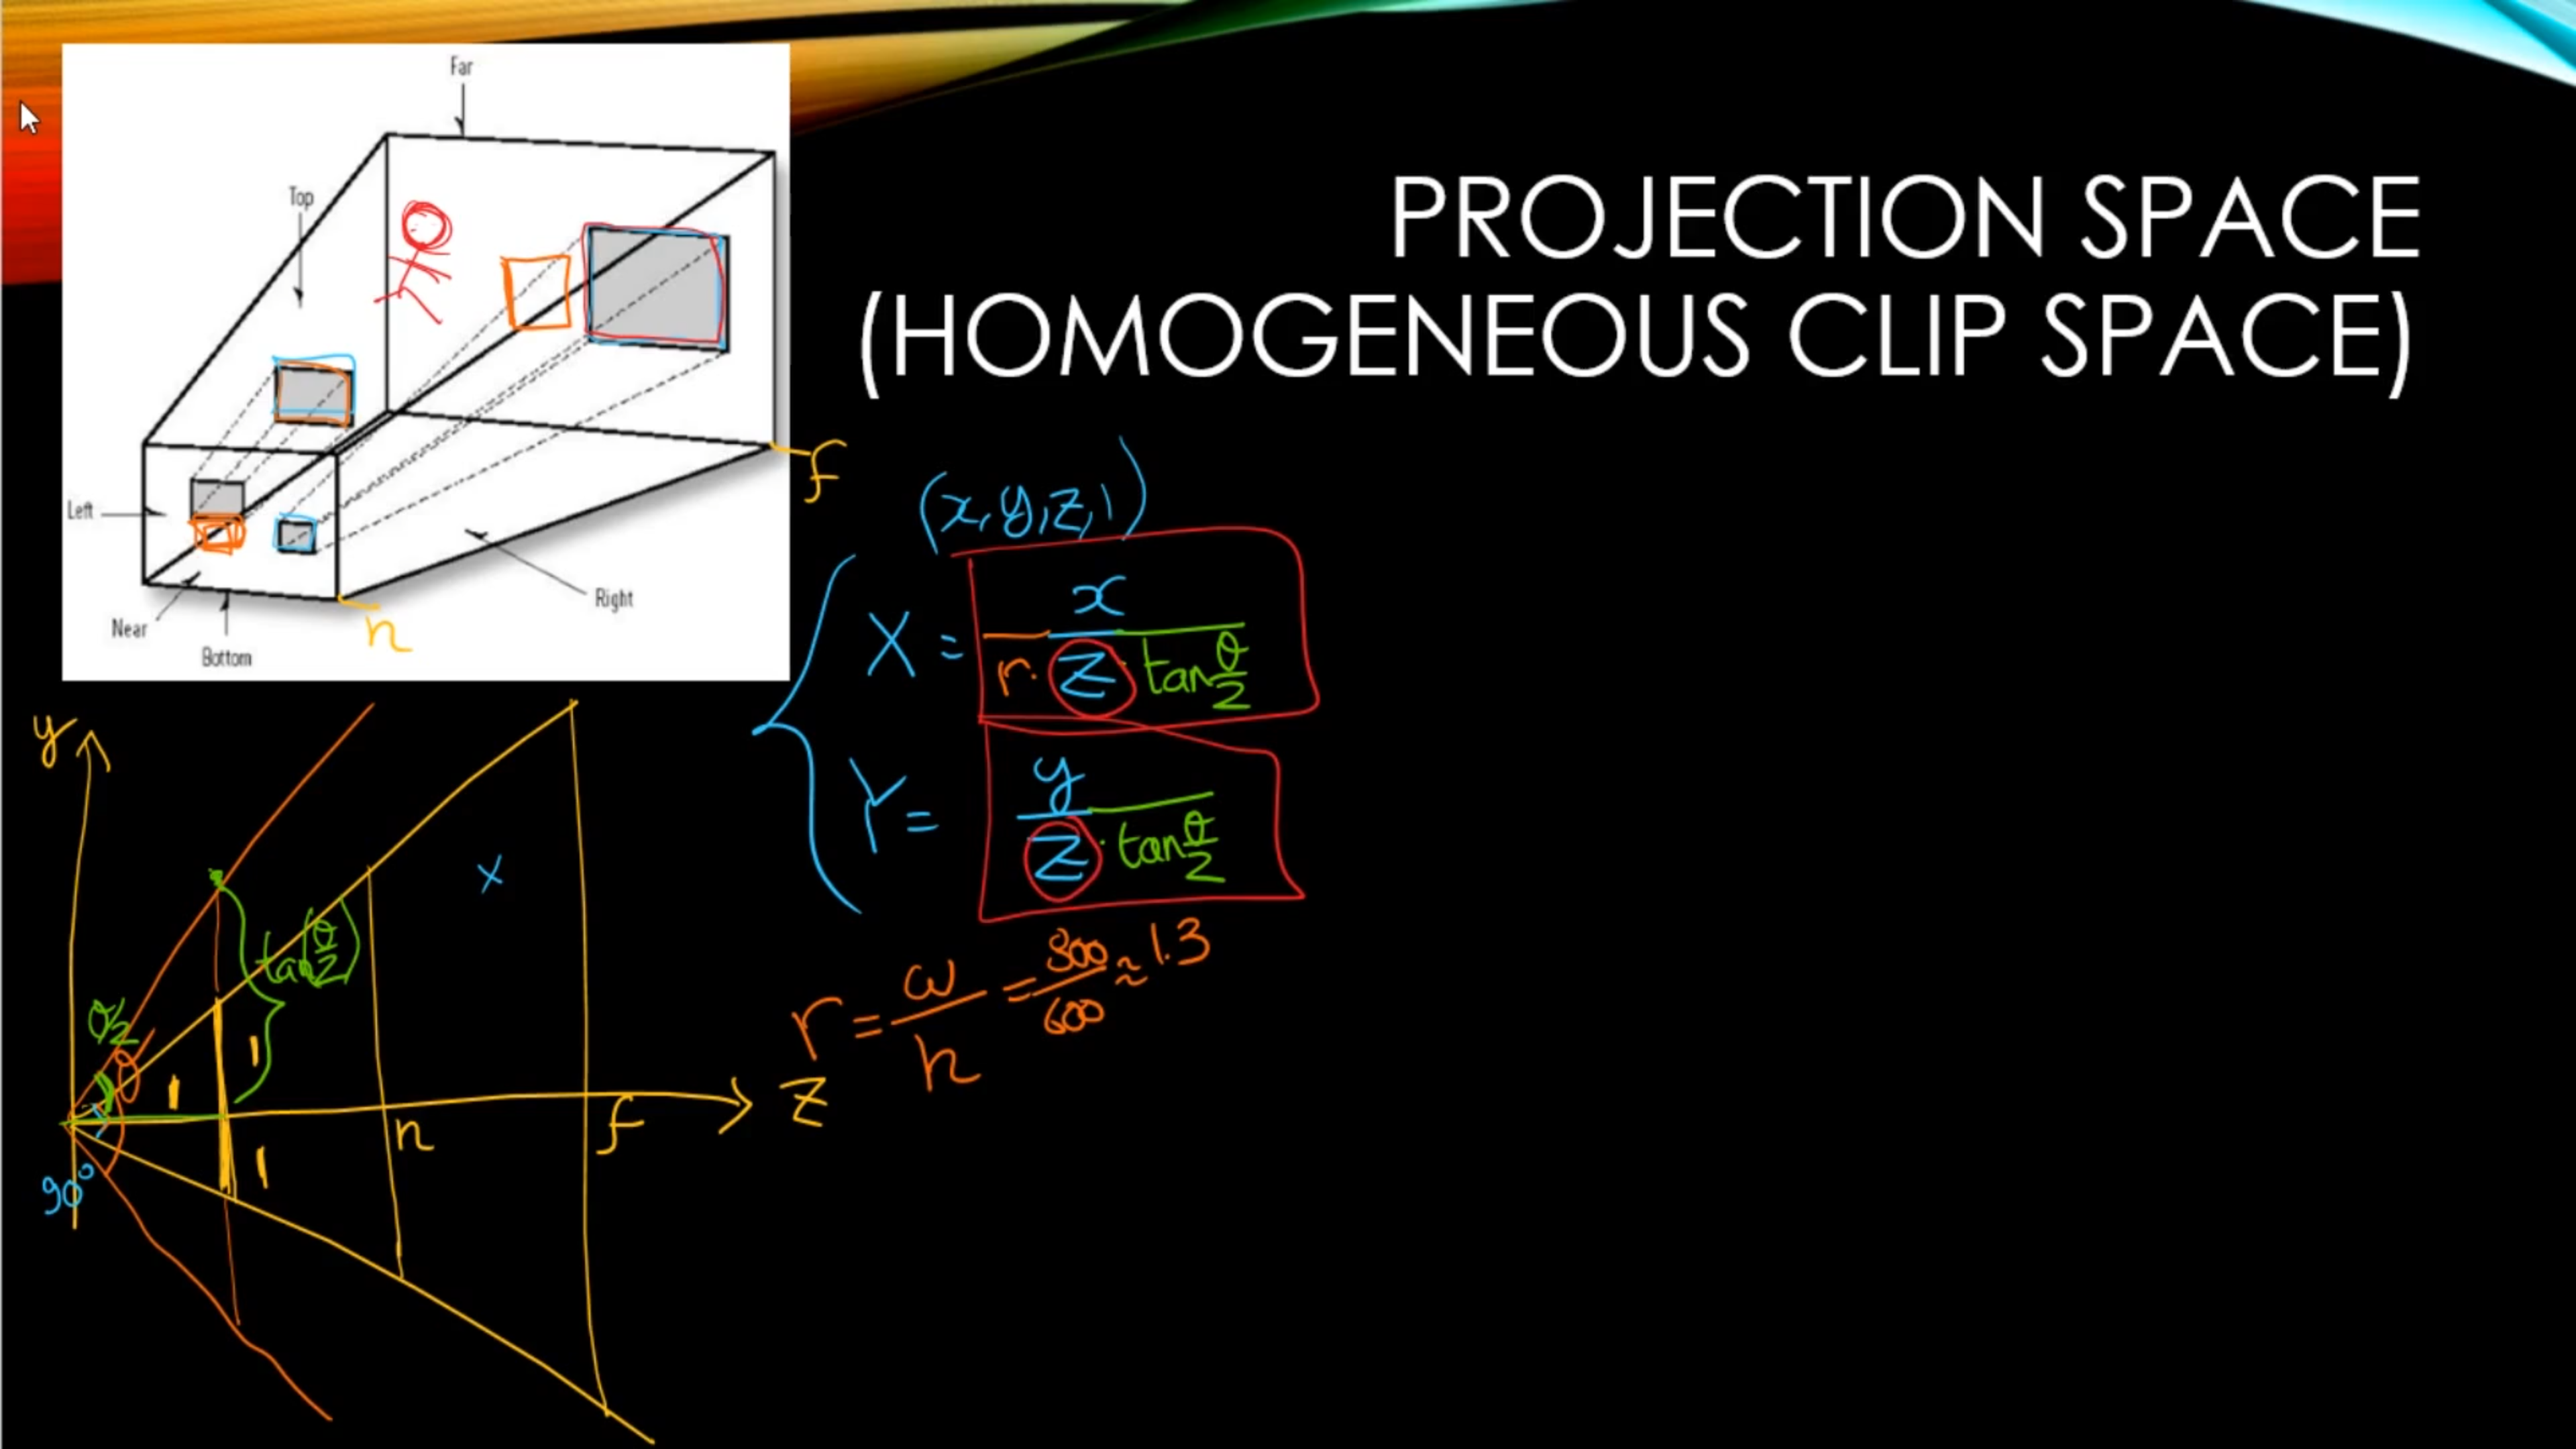 PROJECTION SPACE
(HOMOGENEOUS CLIP SPACE)
Far
Top
Left
Near
Bottom
Right
f
n
(x, y, z, 1)
X = x / r · z · tan θ/2
Y = y / z · tan θ/2
r = w / h = 800 / 600 ≈ 1.3
y
x
tan(θ/2)
θ/2
θ
1
1
1
n
f
z
90°